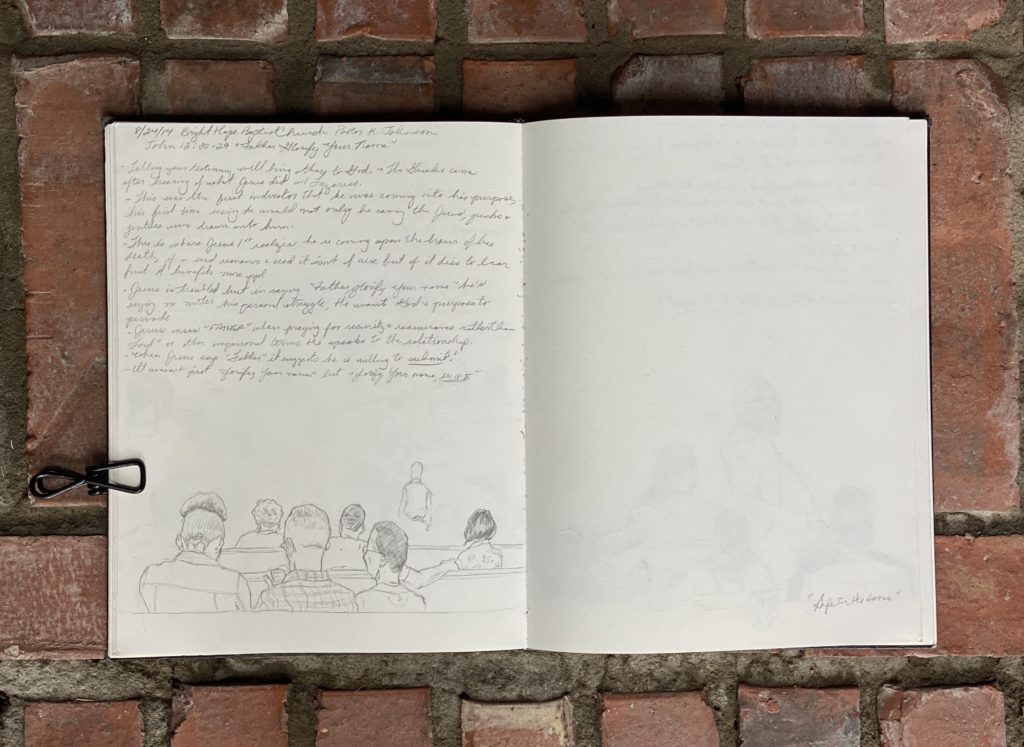 8/24/14 Bright Hope Baptist Church Pastor K. Johnson
John 12:20-29 "Father Glorify Your Name"
- Telling your testimony will bring others to God. The Greeks came
after hearing of what Jesus did w/
- This was the first indicator that he was coming into his purpose,
his first time seeing he would not only be saving the Jews, greeks &
gentiles were drawn unto him.
- This is where Jesus 1st realizes he is coming upon the hour of his
death, if a seed remains a seed it isn't of use but if it dies to bear
fruit it benefits more ppl
- Jesus is troubled but in saying "Father glorify your name" he's
saying no matter his personal struggle, He want God's purpose to
- Jesus uses "FATHER" when praying for security & reassurance rather than
"Lord" or other impersonal terms He speaks to the relationship.
- When Jesus says "Father" it suggests he is willing to submit!
- It wasn't just "Glorify Your name" but "Glorify Your name, IN ME"
"Safe in His Arms"